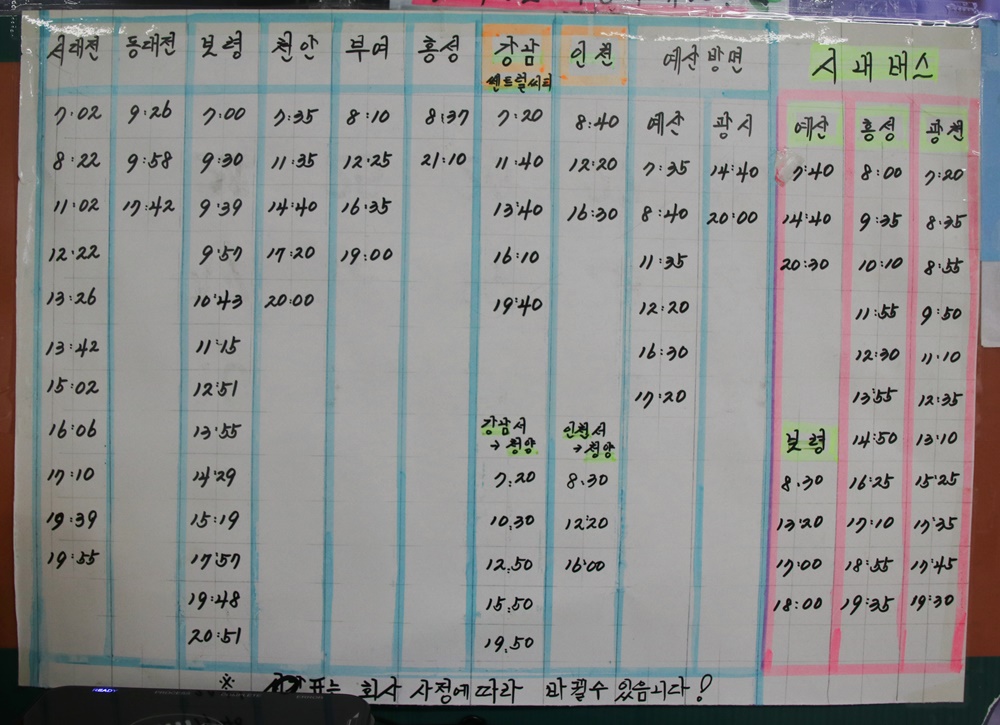 서대전 동대전 보령 천안 부여 홍성 강남 인천 예산방면 시내버스
쎈트럴씨티
7:02 9:26 7:00 7:35 8:10 8:37 7:20 8:40 예산 광시 예산 홍성 광천
8:22 9:58 9:30 11:35 12:25 21:10 11:40 12:20 7:35 14:40 7:40 8:00 7:20
11:02 17:42 9:39 14:40 16:35 13:40 16:30 8:40 20:00 14:40 9:35 8:35
12:22 9:57 17:20 19:00 16:10 11:35 20:30 10:10 8:55
13:26 10:43 20:00 19:40 12:20 11:55 9:50
13:42 11:15 16:30 12:30 11:10
15:02 12:51 17:20 13:55 12:35
16:06 13:55 강남서 인천서 보령 14:50 13:10
→ 청양 → 청양
17:10 14:29 7:20 8:30 8:30 16:25 15:25
19:39 15:19 10:30 12:20 13:20 17:10 17:35
19:55 17:57 12:50 16:00 17:00 18:55 17:45
19:48 15:50 18:00 19:35 19:30
20:51 19:50
※ 표는 회사 사정에 따라 바뀔수 있습니다!